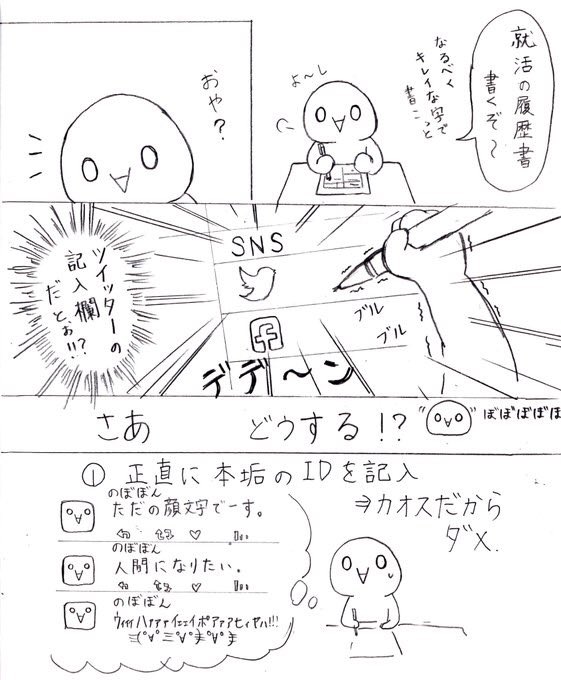 就活の履歴書
書くぞ〜
よ〜し
なるべく
キレイな字で
書こっと
おや?
ツイッターの
記入欄
だとぉ!!?
SNS
ブル
ブル
デデ〜ン
さあ どうする!?
"ぼぼぼぼぼ
① 正直に本垢のIDを記入
⇒カオスだから
ダメ.
のぼぼん
ただの顔文字でーす。
のぼぼん
人間になりたい。
のぼぼん